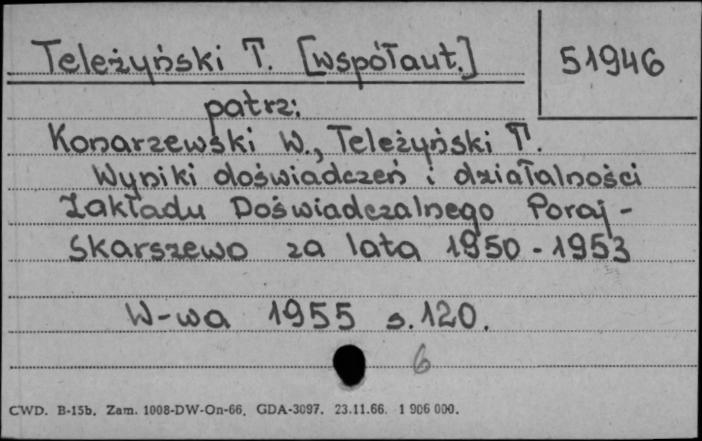 Teleżyński T. [współaut.]
51946
patrz:
Konarzewski W., Teleżyński T.
Wyniki doświadczeń i działalności
Zakładu Doświadczalnego Poraj-
Skarszewo za lata 1950-1953
W-wa 1955 s. 120.
6
CWD. B-15b. Zam. 1008-DW-On-66. GDA-3097. 23.11.66. 1 906 000.